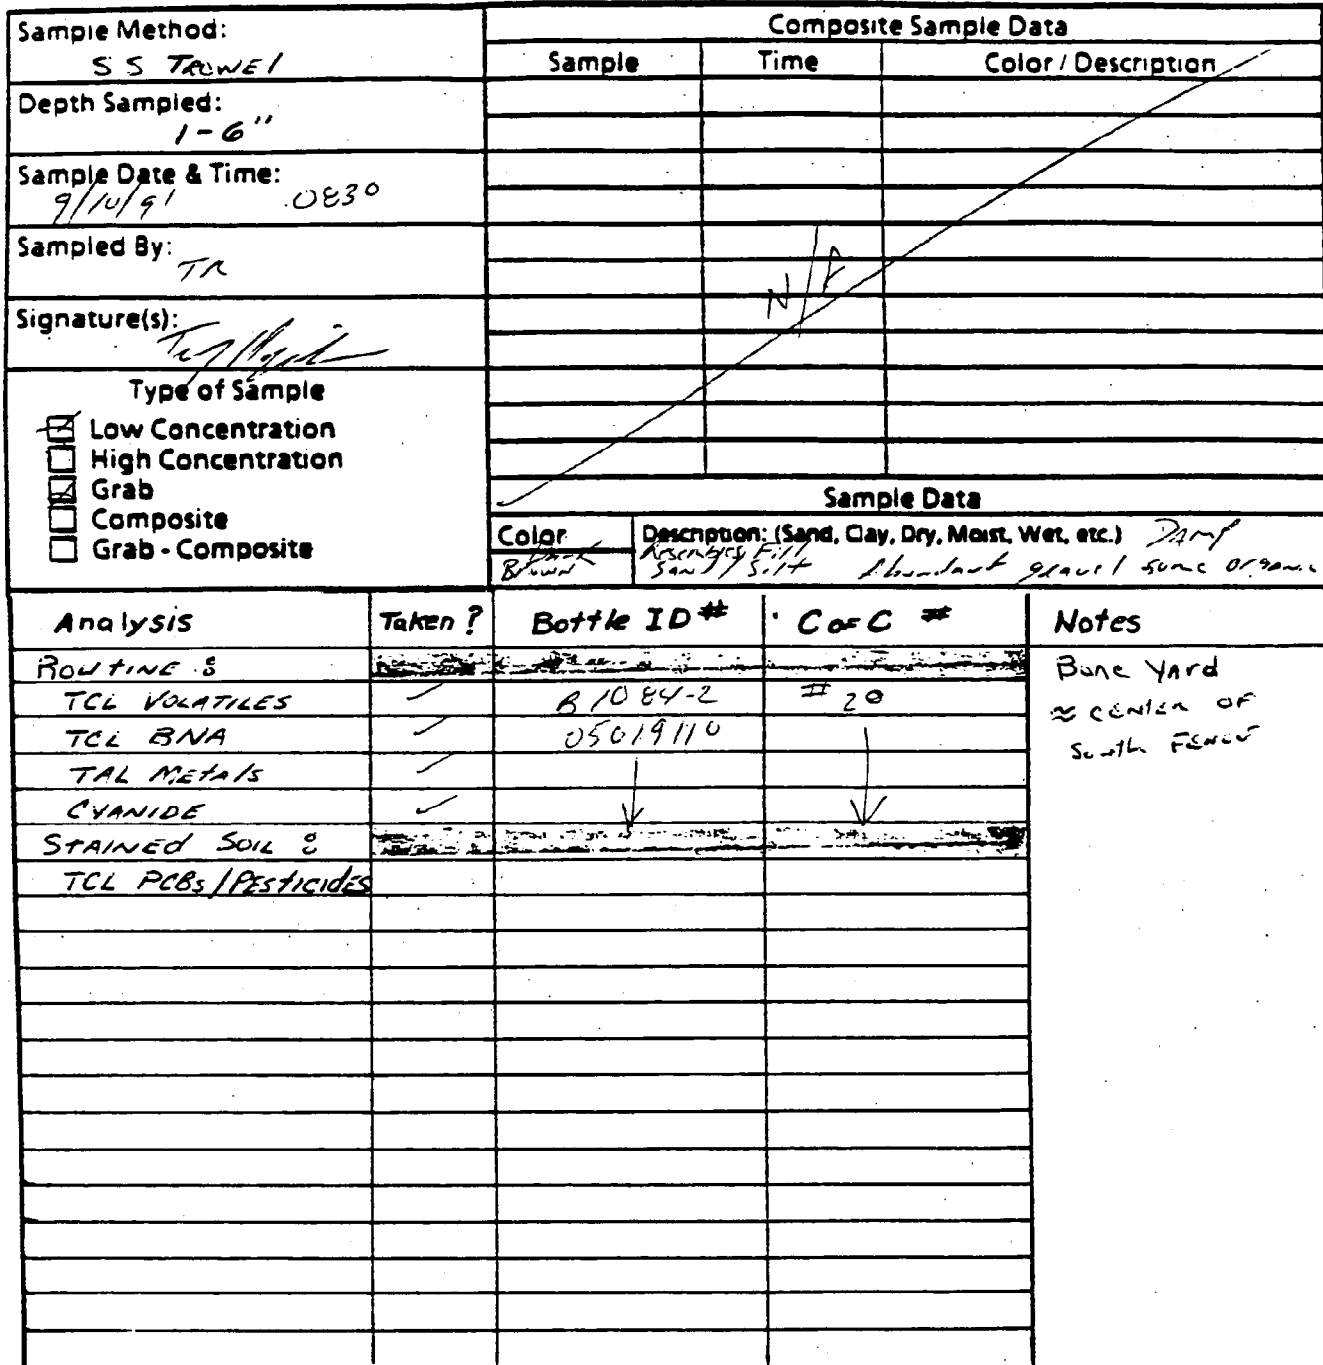 Sample Method:
S S TROWEl
Depth Sampled:
1-6"
Sample Date & Time:
9/10/91 0830
Sampled By:
TR
Signature(s):
Type of Sample
Low Concentration
High Concentration
Grab
Composite
Grab - Composite
Composite Sample Data
Sample Time Color / Description
N/A
Sample Data
Color
Dark
Brown
Description: (Sand, Clay, Dry, Moist, Wet, etc.) DAMP
Resembles Fill
Sandy Silt Abundant gravel some organic
Analysis Taken? Bottle ID # C of C # Notes
ROUTINE :
TCL VOLATILES ✓ B1084-2 # 20
TCL BNA ✓ 05019110
TAL Metals ✓
CYANIDE ✓
STAINED SOIL :
TCL PCBs/PEsticidES
Bone Yard
≈ CENTER OF
South FENCE